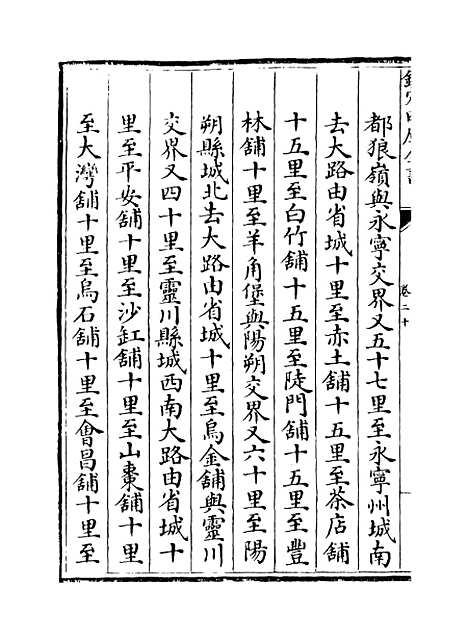 都狼嶺與永寧交界又五十七里至永寧州城南
去大路由省城十里至赤土舖十五里至茶店舖
十五里至白竹舖十五里至陡門舖十五里至豐
林舖十里至羊角堡與陽朔交界又六十里至陽
朔縣城北去大路由省城十里至烏金舖與靈川
交界又四十里至靈川縣城西南大路由省城十
里至平安舖十里至沙缸舖十里至山棗舖十里
至大灣舖十里至烏石舖十里至會昌舖十里至
卷二十